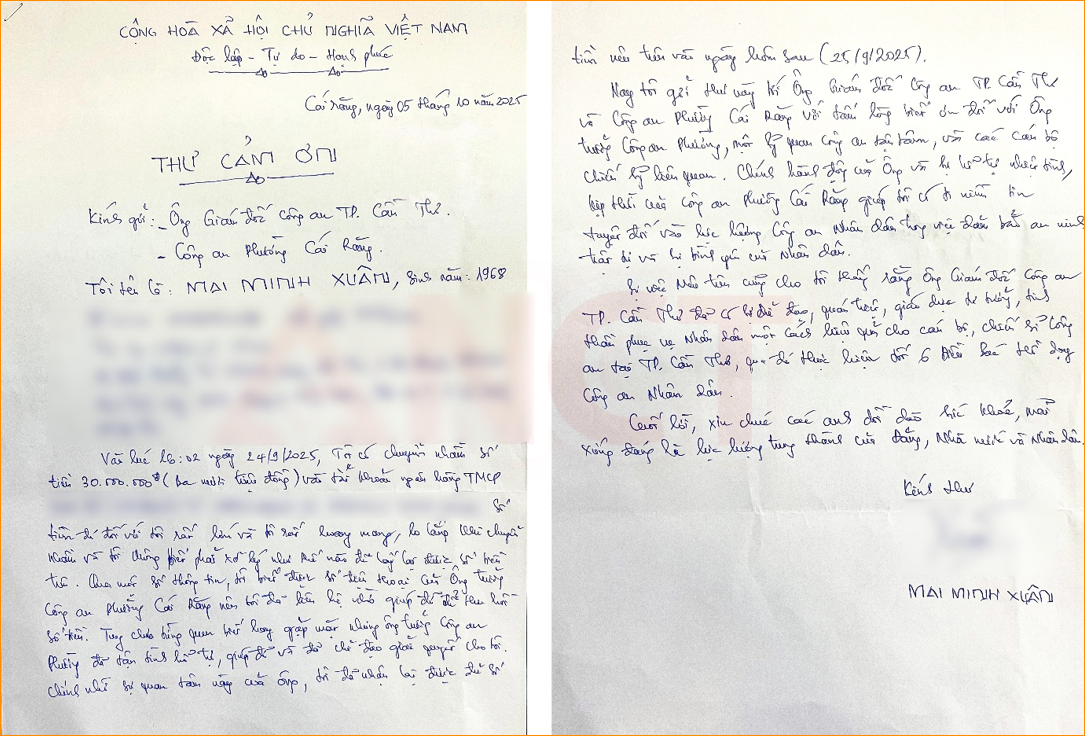 CỘNG HOÀ XÃ HỘI CHỦ NGHĨA VIỆT NAM
Độc lập - Tự do - Hạnh phúc
Cái Răng, ngày 05 tháng 10 năm 2025
THƯ CẢM ƠN
Kính gửi: - Ông Giám đốc Công an TP. Cần Thơ.
- Công an Phường Cái Răng.
Tôi tên là: MAI MINH XUÂN, Sinh năm: 1968
Vào lúc 16:02 ngày 24/9/2025, Tôi có chuyển nhầm số
tiền 30.000.000đ (ba mươi triệu đồng) vào tài khoản ngân hàng TMCP
Số
tiền đó đối với tôi rất lớn và tôi rất hoang mang, lo lắng khi chuyển
nhầm và tôi không biết phải xử lý như thế nào để lấy lại được số tiền
trên. Qua một số thông tin, tôi biết được số điện thoại của Ông trưởng
Công an Phường Cái Răng nên tôi đã liên hệ nhờ giúp đỡ để thu hồi
số tiền. Tuy chưa từng quen biết hay gặp mặt nhưng ông trưởng Công an
Phường đã tận tình hỗ trợ, giúp đỡ và đã chỉ đạo giải quyết cho tôi.
Chính nhờ sự quan tâm này của ông, tôi đã nhận lại được đủ số
tiền nêu trên vào ngày hôm sau (25/9/2025).
Nay tôi gửi thư này tới Ông Giám đốc Công an TP. Cần Thơ
và Công an Phường Cái Răng với tấm lòng biết ơn đối với Ông
trưởng Công an Phường, một sỹ quan Công an tận tâm, và các cán bộ
chiến sỹ liên quan. Chính hành động của Ông và hỗ trợ nhiệt tình,
kịp thời của Công an Phường Cái Răng giúp tôi có niềm tin
tuyệt đối vào lực lượng Công an Nhân dân trong việc đảm bảo an ninh
trật tự và sự bình yên của Nhân dân.
Sự việc nêu trên cũng cho tôi thấy rằng Ông Giám đốc Công an
TP. Cần Thơ đã có sự chỉ đạo, quán triệt, giáo dục tư tưởng, tinh
thần phục vụ Nhân dân một cách hiệu quả cho cán bộ, chiến sĩ Công
an tại TP. Cần Thơ, qua đó thực hiện tốt 6 điều Bác Hồ dạy
Công an Nhân dân.
Cuối lời, xin chúc các anh dồi dào sức khoẻ, mãi
xứng đáng là lực lượng trung thành của Đảng, Nhà nước và Nhân dân.
Kính thư
MAI MINH XUÂN